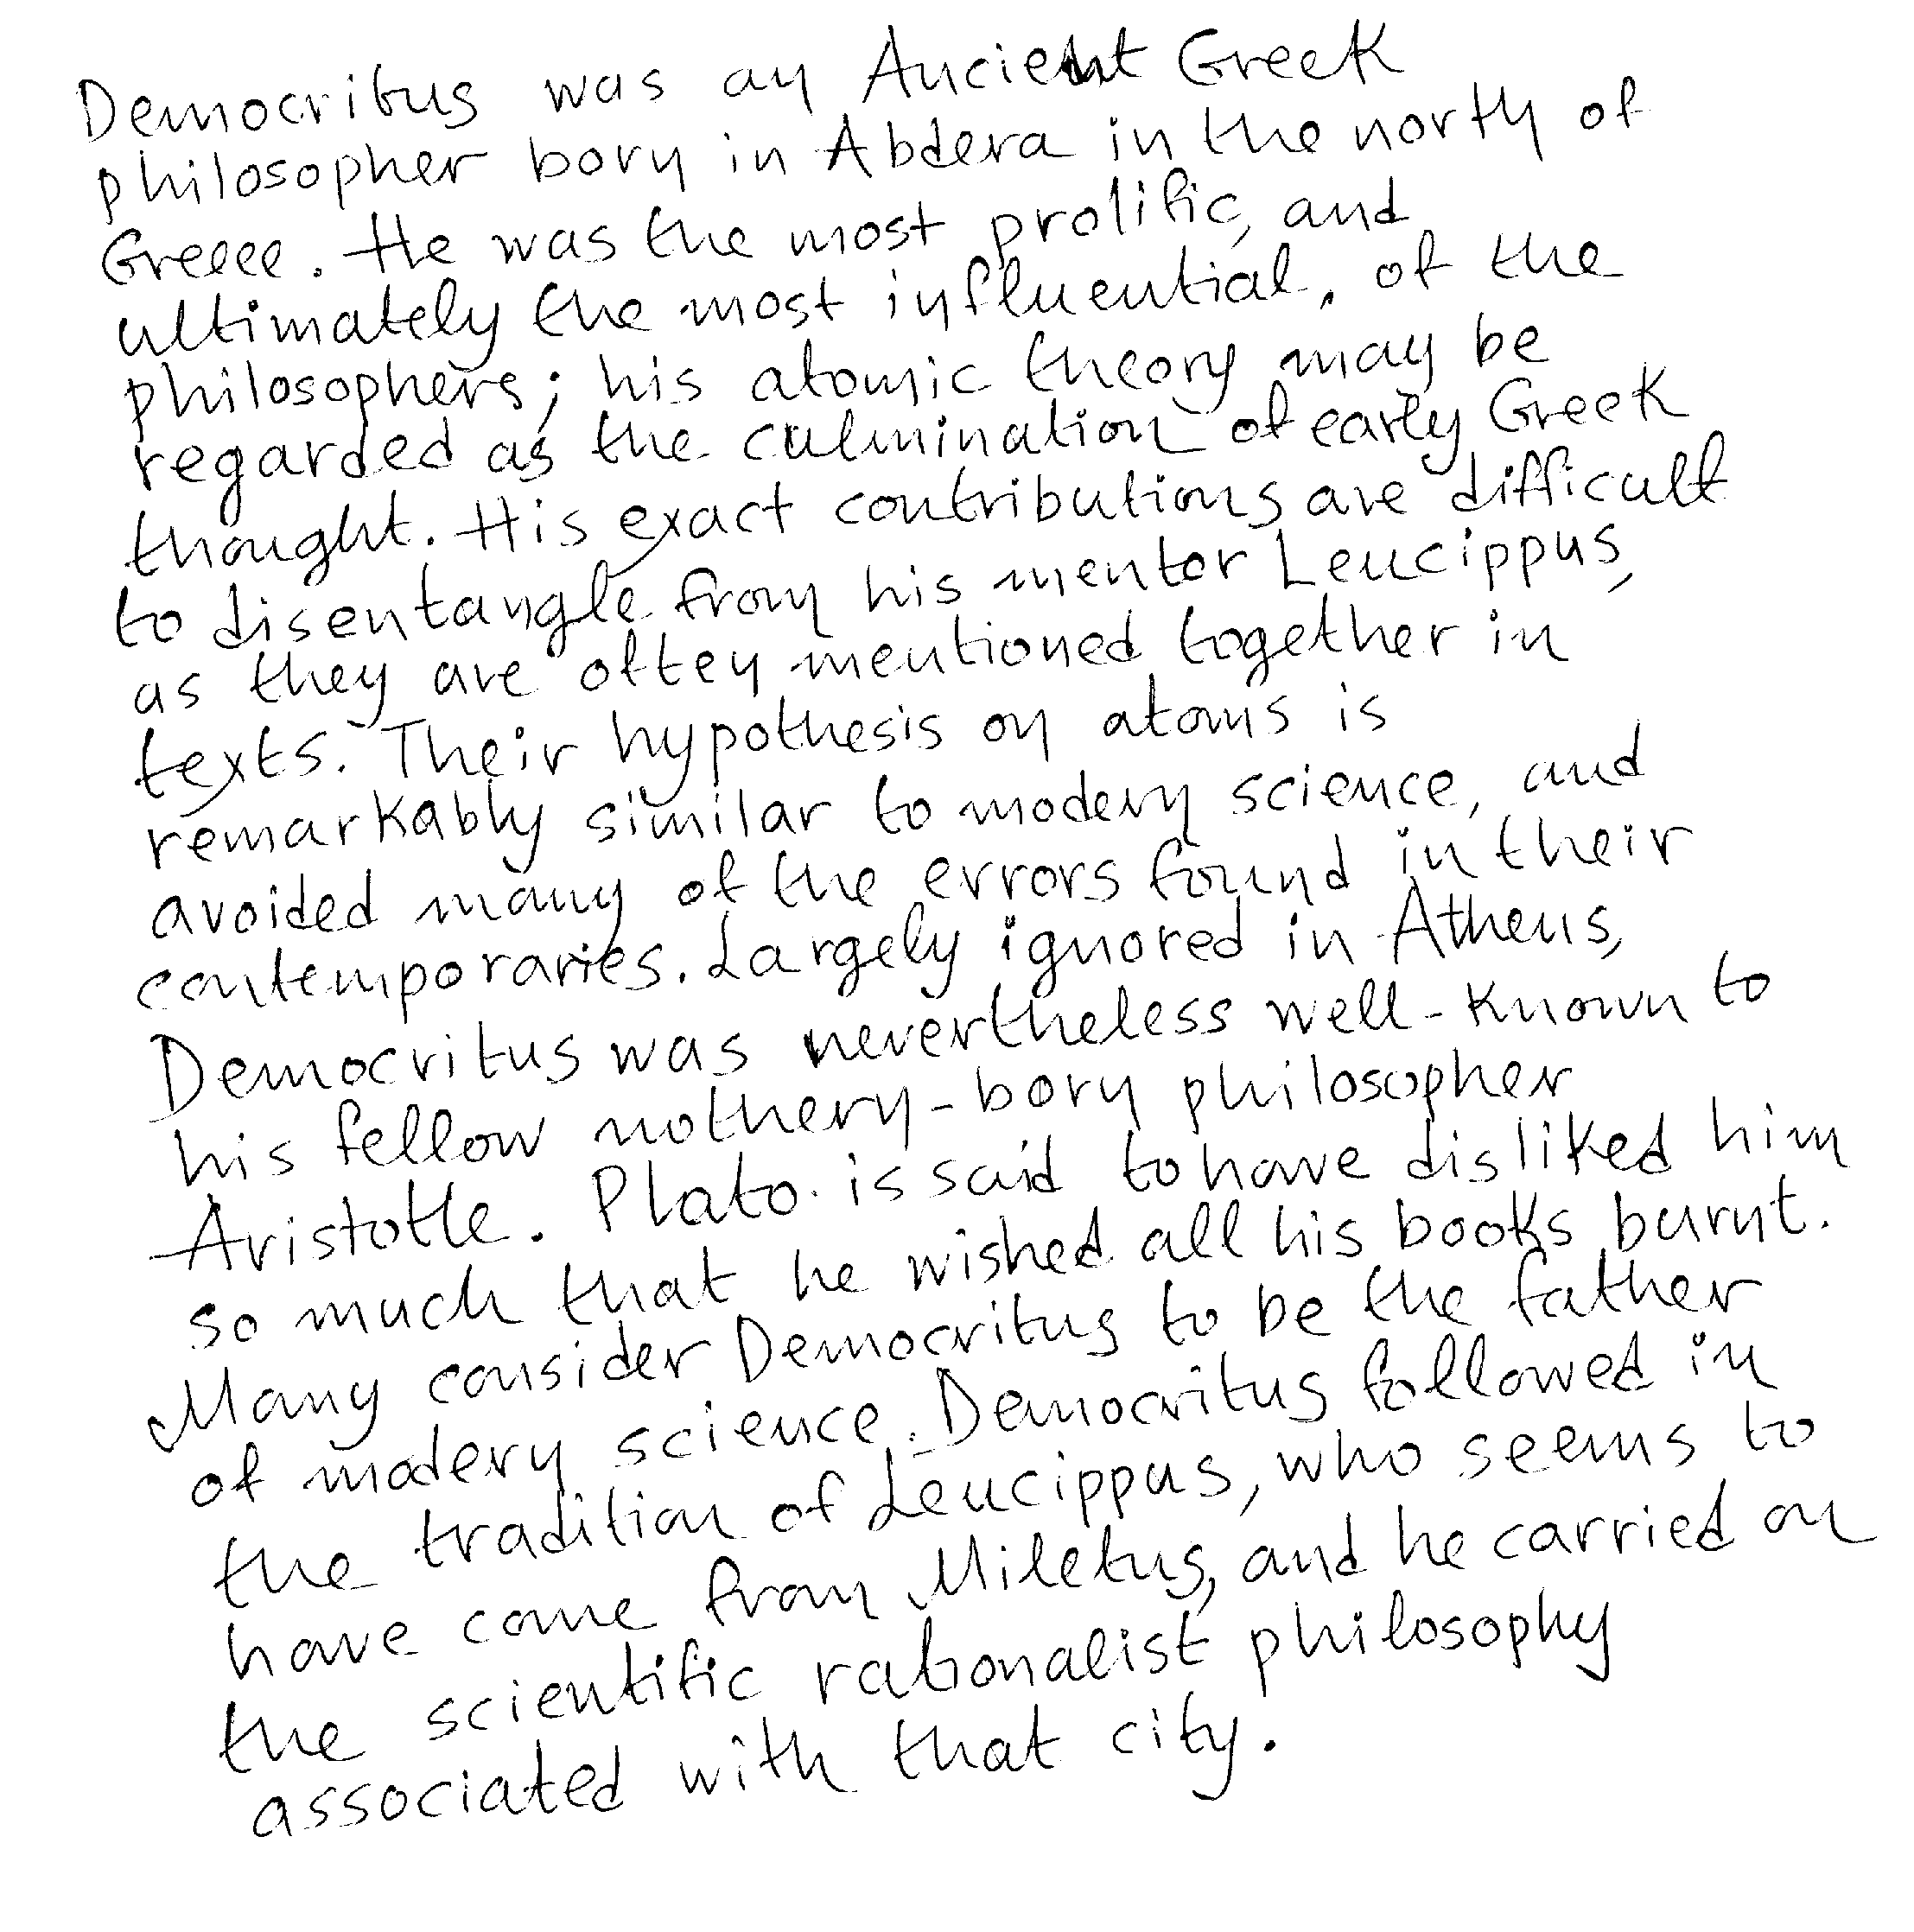 Democritus was an Ancient Greek
philosopher born in Abdera in the north of
Greece. He was the most prolific, and
ultimately the most influential, of the
philosophers; his atomic theory may be
regarded as the culmination of early Greek
thought. His exact contributions are difficult
to disentangle from his mentor Leucippus,
as they are often mentioned together in
texts. Their hypothesis on atoms is
remarkably similar to modern science, and
avoided many of the errors found in their
contemporaries. Largely ignored in Athens,
Democritus was nevertheless well-known to
his fellow nothern-born philosopher
Aristotle. Plato is said to have disliked him
so much that he wished all his books burnt.
Many consider Democritus to be the father
of modern science. Democritus followed in
the tradition of Leucippus, who seems to
have come from Miletus, and he carried on
the scientific rationalist philosophy
associated with that city.